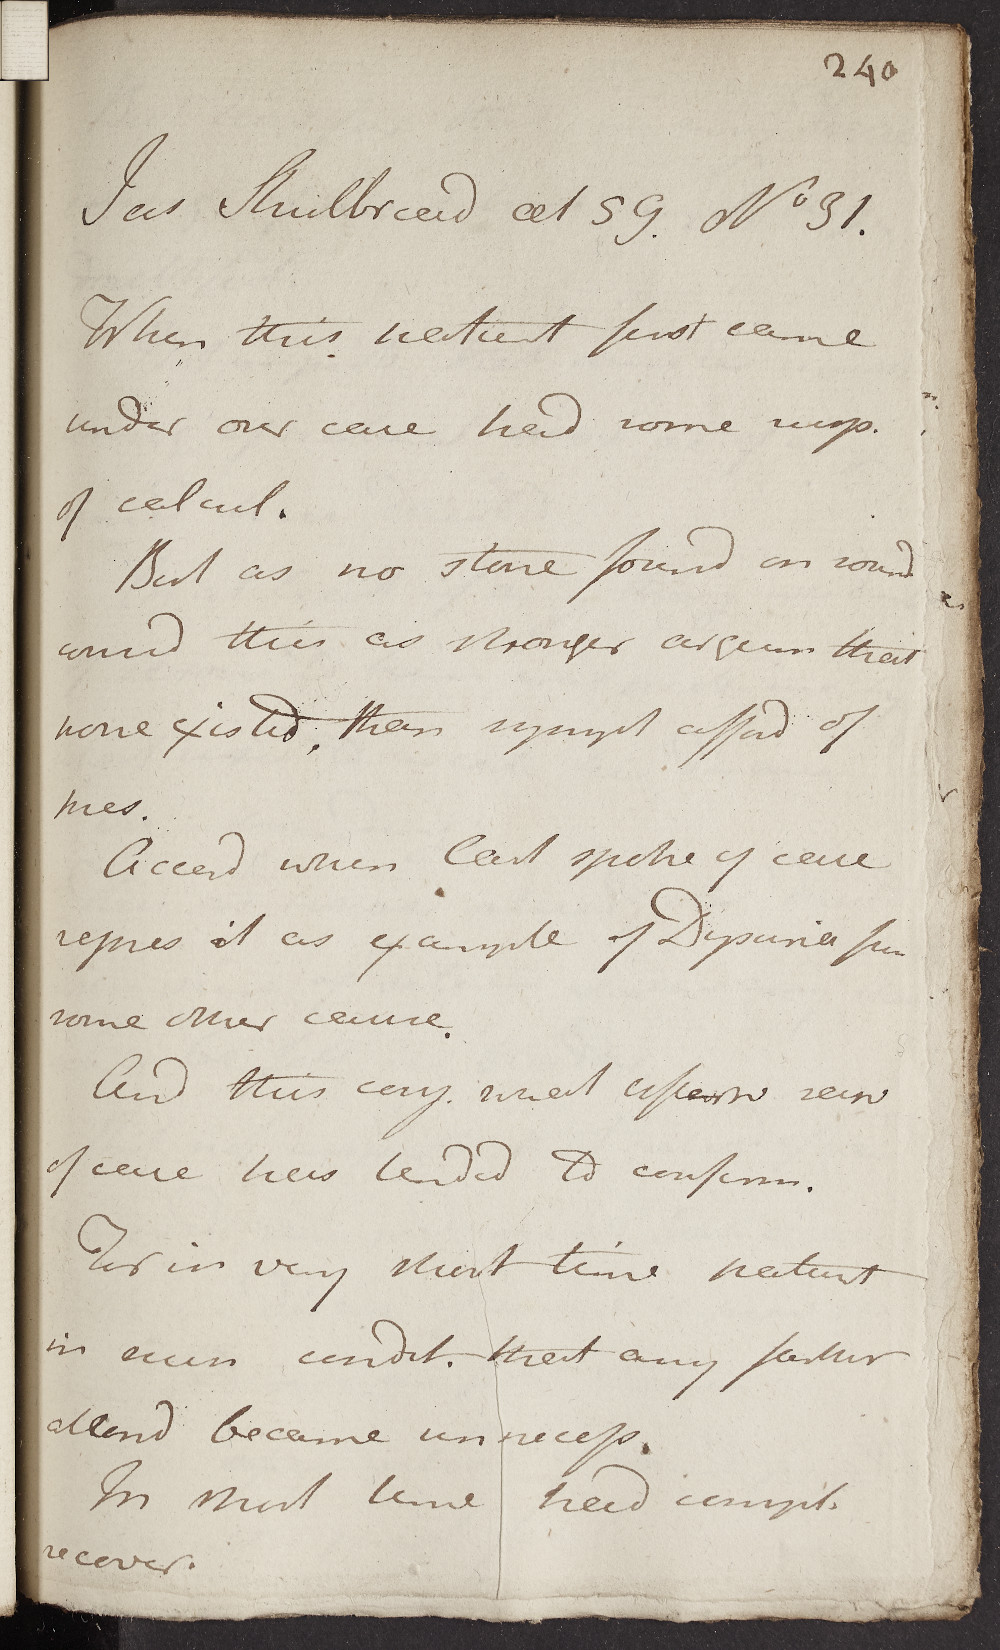 240
Jas Shulbread aet 59. No 31.
When this patient first came
under our care had some susp.
of calcul.
But as no stone found on sound
consid this as stronger argum that
none existed, than sympt afford of
pres.
Accord when last spoke of case
repres it as example of Dysuria from
some other cause.
And this conj. what afterw seen
of case has tended to confirm.
For in very short time patient
in such condit. that any farther
attend became unnecess.
In short time had compl.
recover.